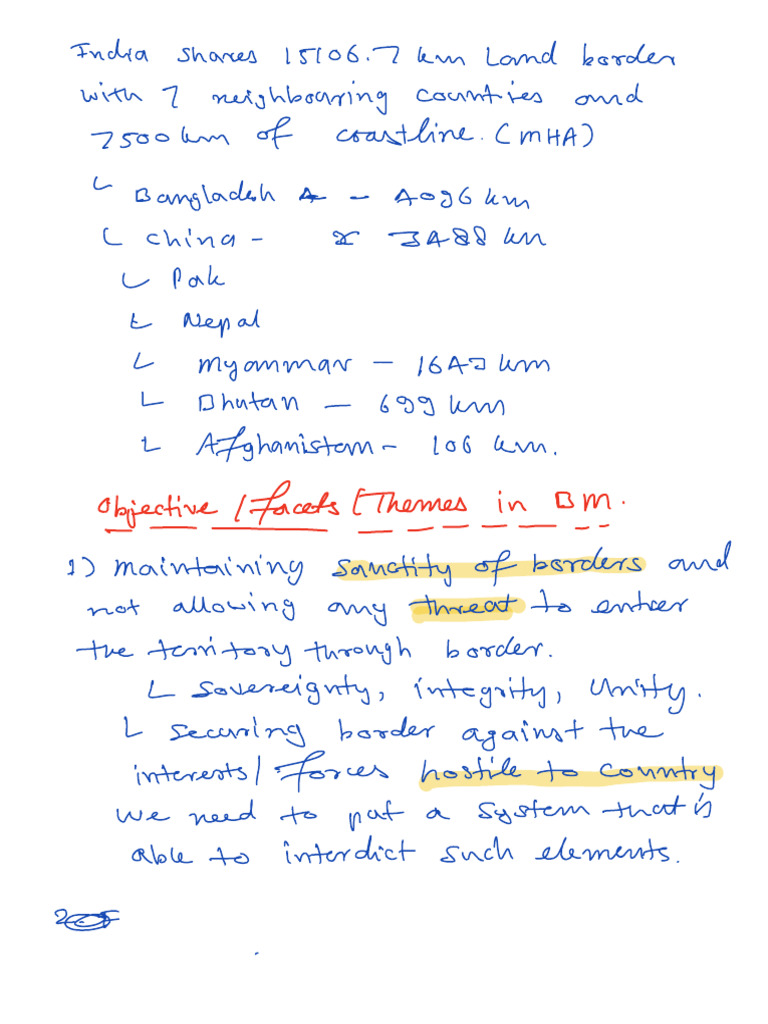 India shares 15106.7 km Land border
with 7 neighbouring counties and
7500 km of coastline. (MHA)
Bangladesh - 4096 km
China - 3488 km
Pak
Nepal
Myanmar - 1643 km
Bhutan - 699 km
Afghanistan - 106 km.
Objective / Facets / Themes in BM.
1) Maintaining sanctity of borders and
not allowing any threat to enter
the territory through border.
Sovereignty, integrity, Unity.
Securing border against the
interests / Forces hostile to country
We need to put a system that is
able to interdict such elements.